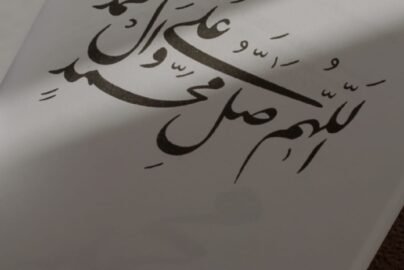 اللّٰهُمَّ صَلِّ عَلَىٰ
مُحَمَّدٍ وَآلِ مُحَمَّد